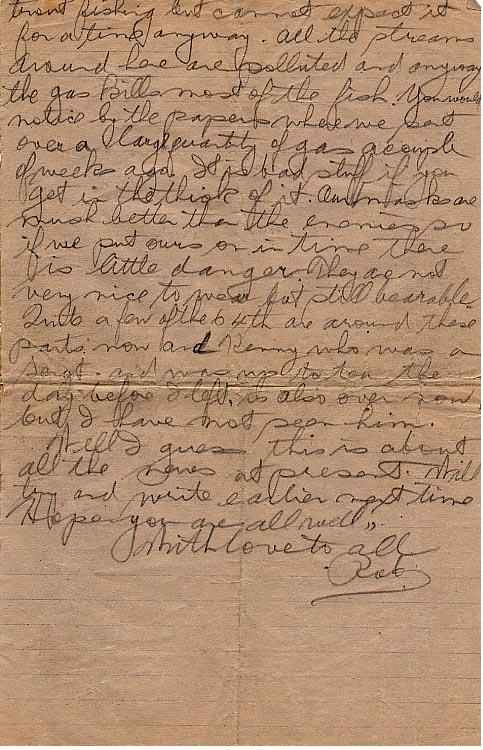 trout fishing but cannot expect it
for a time anyway. All the streams
around here are polluted and anyway
the gas kills most of the fish. You would
notice by the papers where we sent
over a large quantity of gas a couple
of weeks ago. It is bad stuff if you
get in the thick of it. Our masks are
much better than the enemies so
if we put ours on in time there
is little danger. They are not
very nice to wear but still bearable.
Quite a few of the 64th are around these
parts now and Kenny who was a
Sergt. and was up to tea the
day before I left, is also over now
but I have not seen him.
Well I guess this is about
all the news at present. Will
try and write earlier next time
Hope you are all well.
With love to all
Rob.